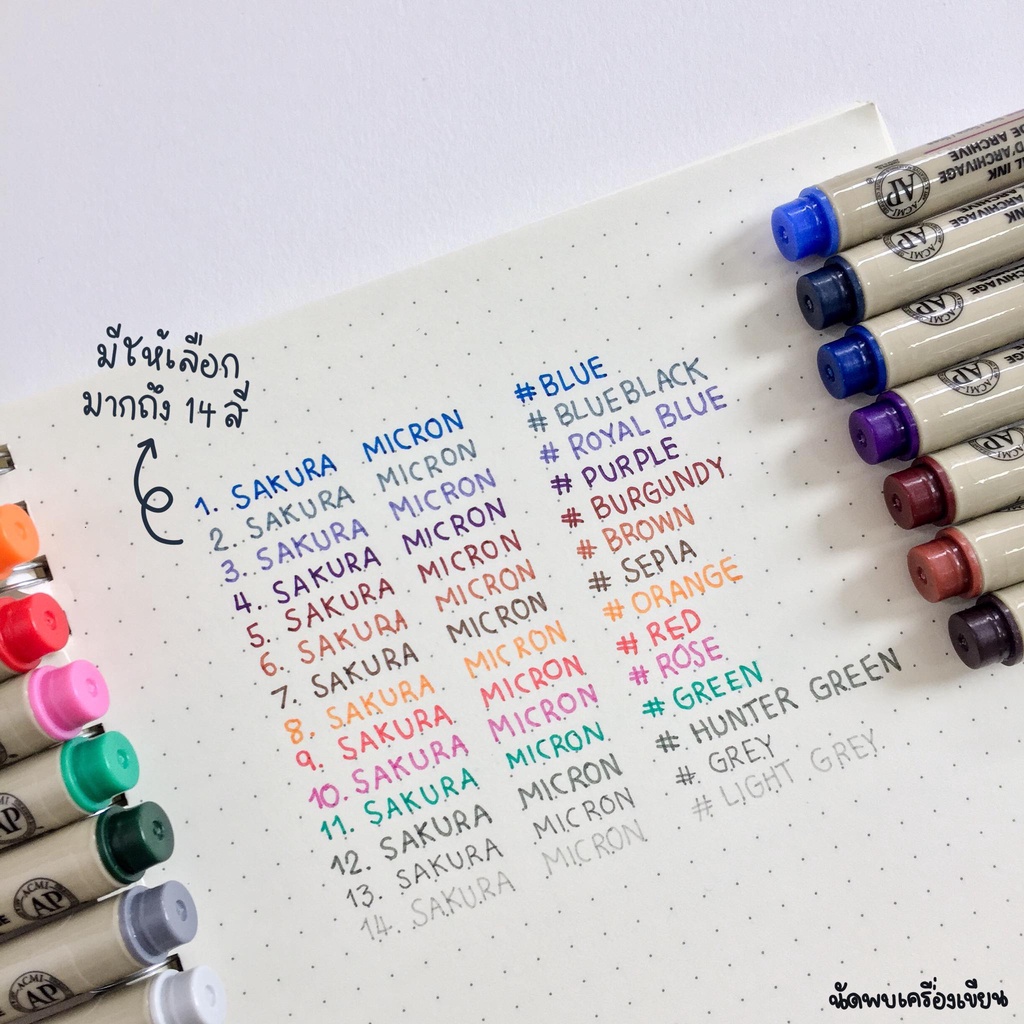 มีให้เลือก
มากถึง 14 สี
1. SAKURA MICRON #BLUE
2. SAKURA MICRON #BLUEBLACK
3. SAKURA MICRON #ROYAL BLUE
4. SAKURA MICRON #PURPLE
5. SAKURA MICRON #BURGUNDY
6. SAKURA MICRON #BROWN
7. SAKURA MICRON #SEPIA
8. SAKURA MICRON #ORANGE
9. SAKURA MICRON #RED
10. SAKURA MICRON #ROSE
11. SAKURA MICRON #GREEN
12. SAKURA MICRON #HUNTER GREEN
13. SAKURA MICRON #GREY
14. SAKURA MICRON #LIGHT GREY
INK
D'ARCHIVAGE
DE ARCHIVE
AP
ACMI
INK
ARCHIVAGE
AP
ACMI
AP
ACMI
AP
ACMI
AP
AP
ACMI
AP
ACMI
AP
นัดพบเครื่องเขียน